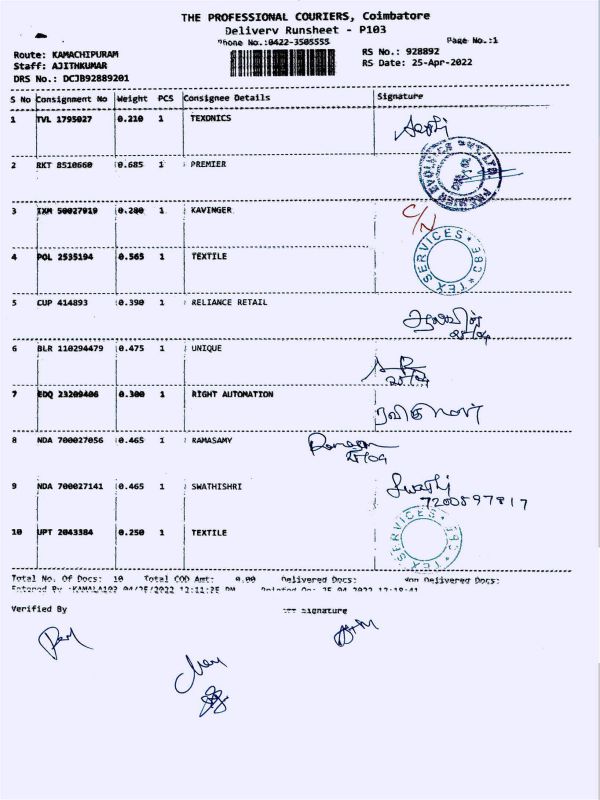 THE PROFESSIONAL COURIERS, Coimbatore
Delivery Runsheet - P103
Phone No.:0422-3505555
Page No.:1
Route: KAMACHIPURAM
RS No.: 928892
Staff: AJITHKUMAR
RS Date: 25-Apr-2022
DRS No.: DCJB92889201
S No Consignment No Weight PCS Consignee Details Signature
1 TVL 1795027 0.210 1 TEXONICS
2 RKT 8510660 0.685 1 PREMIER
3 IXM 50027919 0.280 1 KAVINGER
C/N
4 POL 2535194 0.565 1 TEXTILE
TEX SERVICES
5 CUP 414893 0.390 1 RELIANCE RETAIL
25/04
6 BLR 110294479 0.475 1 UNIQUE
25/04
7 EDQ 23209406 0.300 1 RIGHT AUTOMATION
8 NDA 700027056 0.465 1 RAMASAMY
25/04
9 NDA 700027141 0.465 1 SWATHISHRI Swathi
7200597817
10 UPT 2043384 0.250 1 TEXTILE
TEX SERVICES
Total No. Of Docs: 10 Total COD Amt: 0.00 Delivered Docs: Non Delivered Docs:
Verified By
Signature